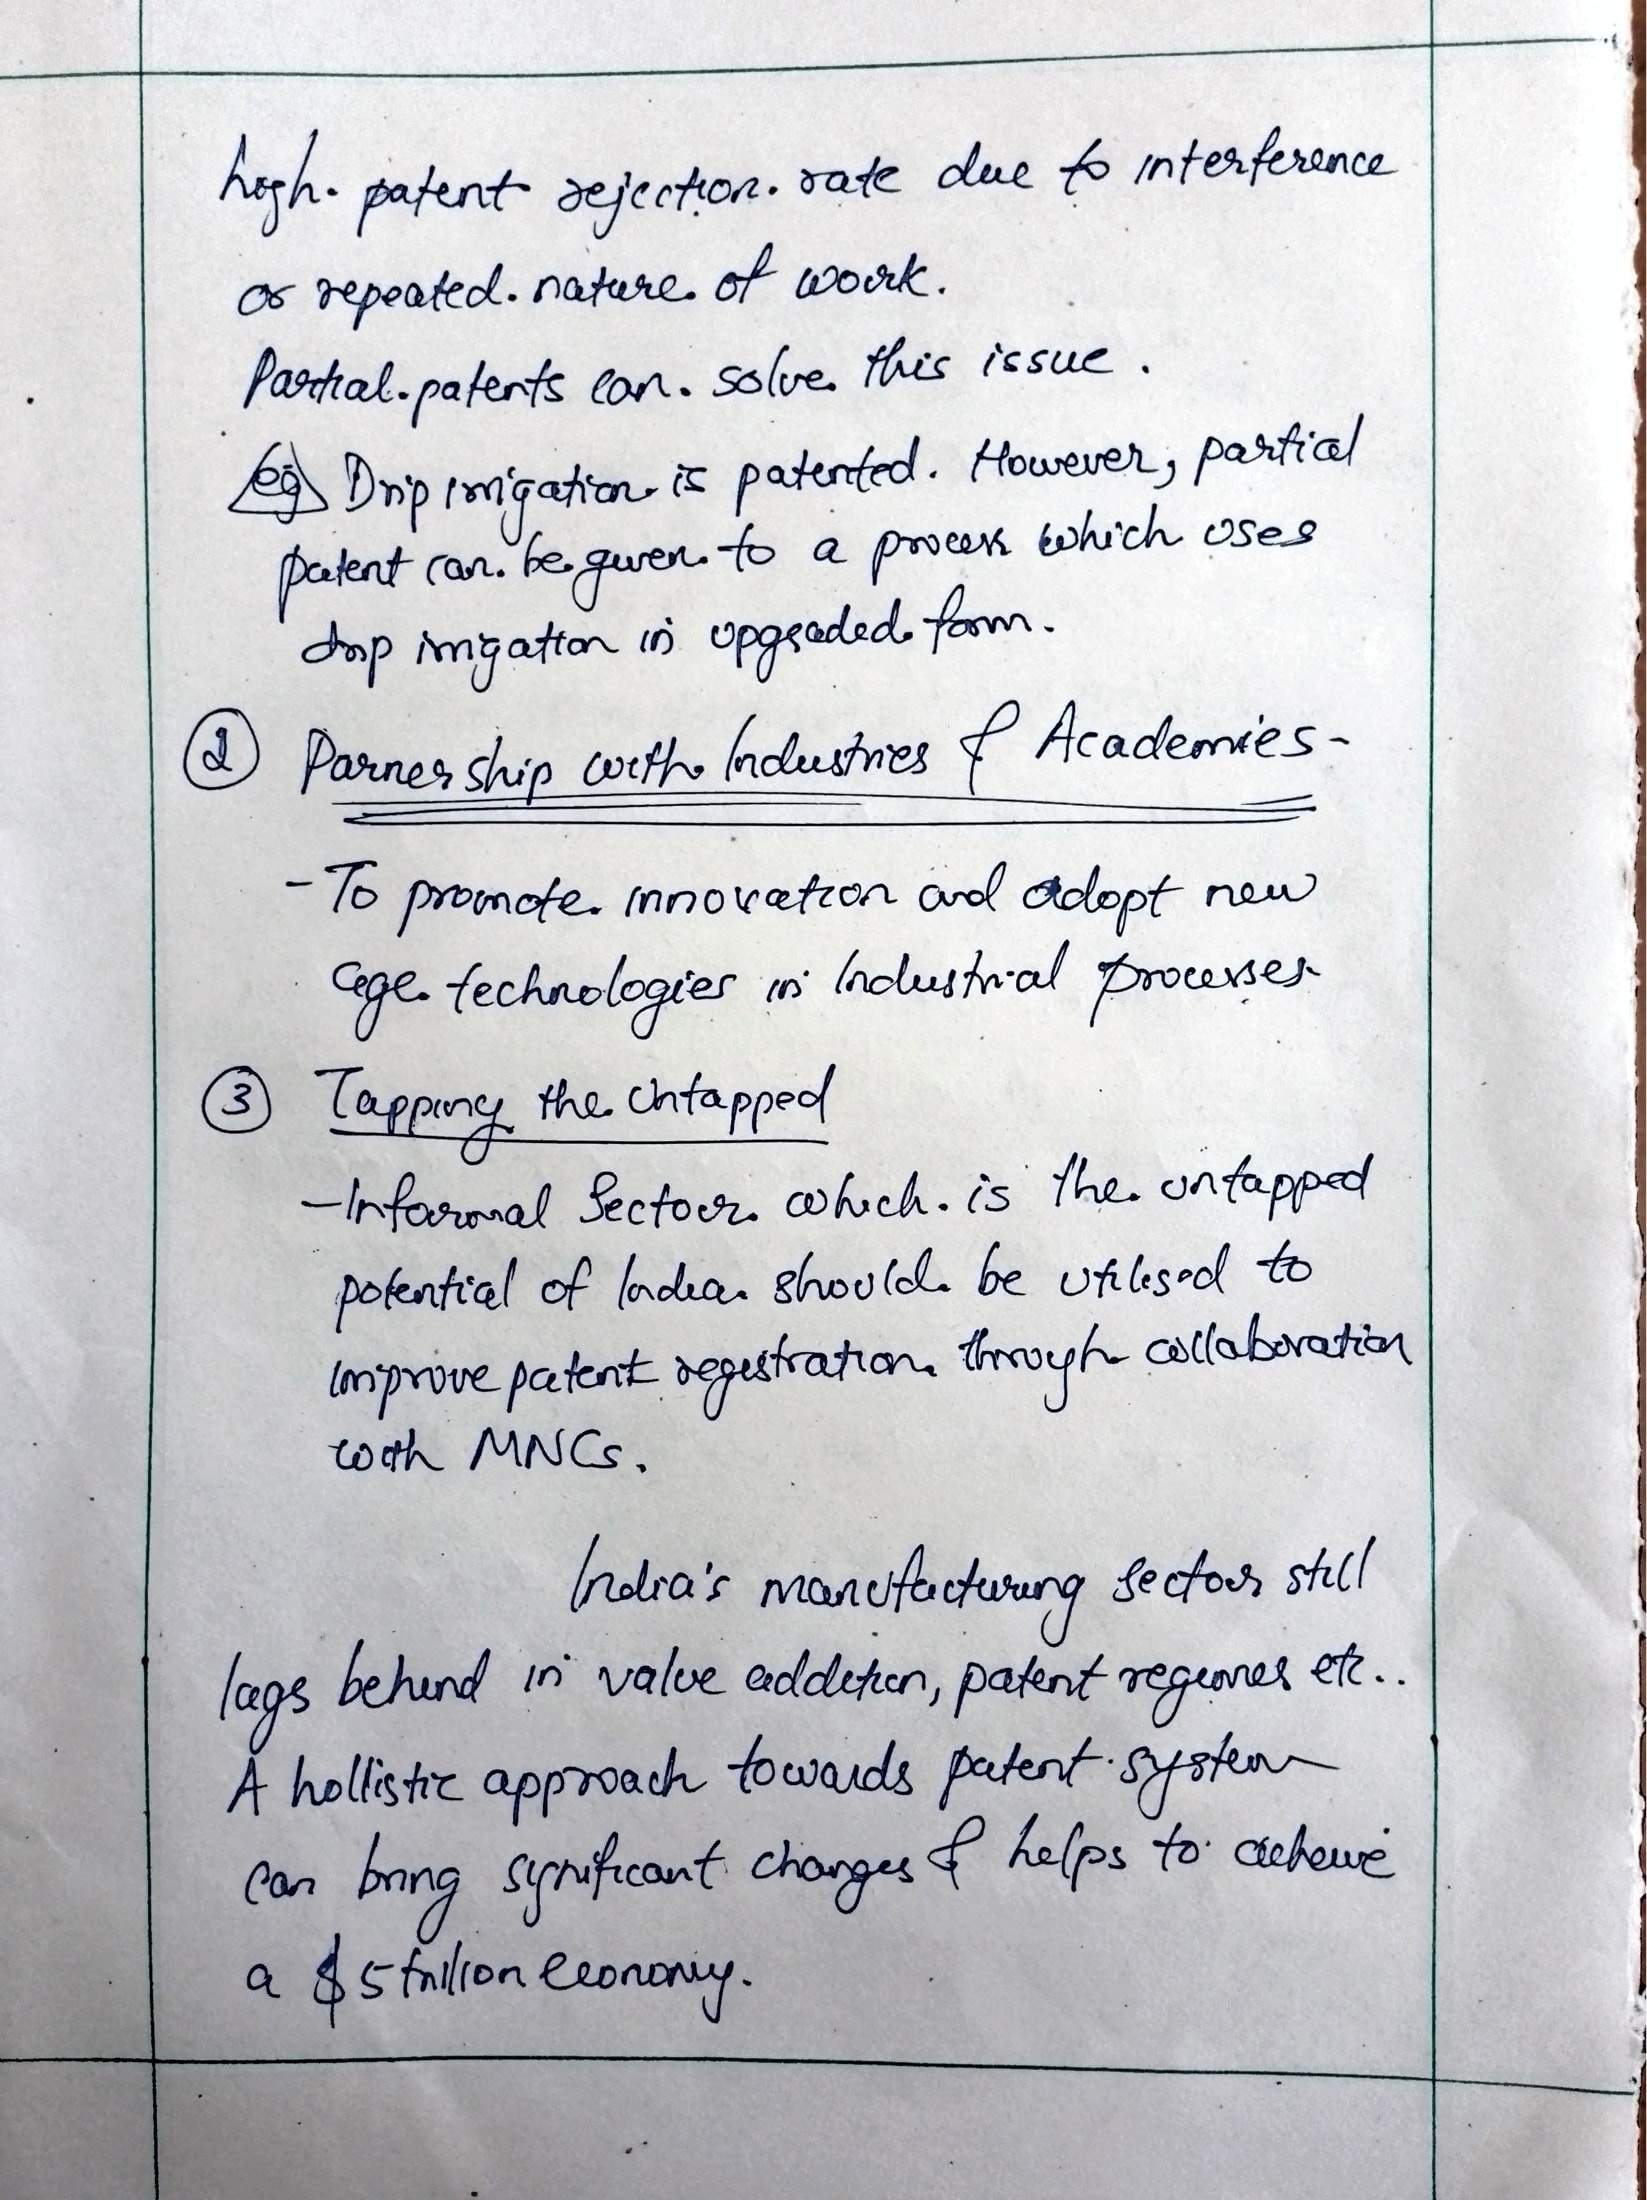 high patent rejection rate due to interference
or repeated nature of work.
Partial patents can solve this issue.
eg Drip irrigation is patented. However, partical
patent can be given to a process which uses
drip irrigation in upgraded form.
2 Parnership with Industries & Academies-
- To promote innovation and adopt new
age technologies in Industrial processes
3 Tapping the Untapped
- Informal Sector which is the untapped
potential of India should be utilised to
improve patent registration through collaboration
with MNCs.
India's manufacturing sector still
lags behind in value addition, patent regimes etc..
A hollistic approach towards patent system
can bring significant changes & helps to acheive
a $5 trillion economy.